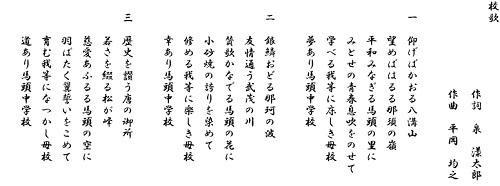 校歌
作詞 泉 漾太郎
作曲 平岡 均之
一 仰げばかおる八溝山
望めばはるる那須の嶺
平和みなぎる馬頭の里に
みとせの青春息吹をのせて
学べる我等に楽しき母校
夢あり馬頭中学校
二 銀鱗おどる那珂の波
友情通う武茂の川
賛歌かなでる馬頭の花に
小砂焼の誇りを染めて
修める我等に楽しき母校
幸あり馬頭中学校
三 歴史を讃う唐の御所
若さを綴る松が峰
慈愛あふるる馬頭の空に
羽ばたく翼誓いをこめて
育む我等になつかし母校
道あり馬頭中学校